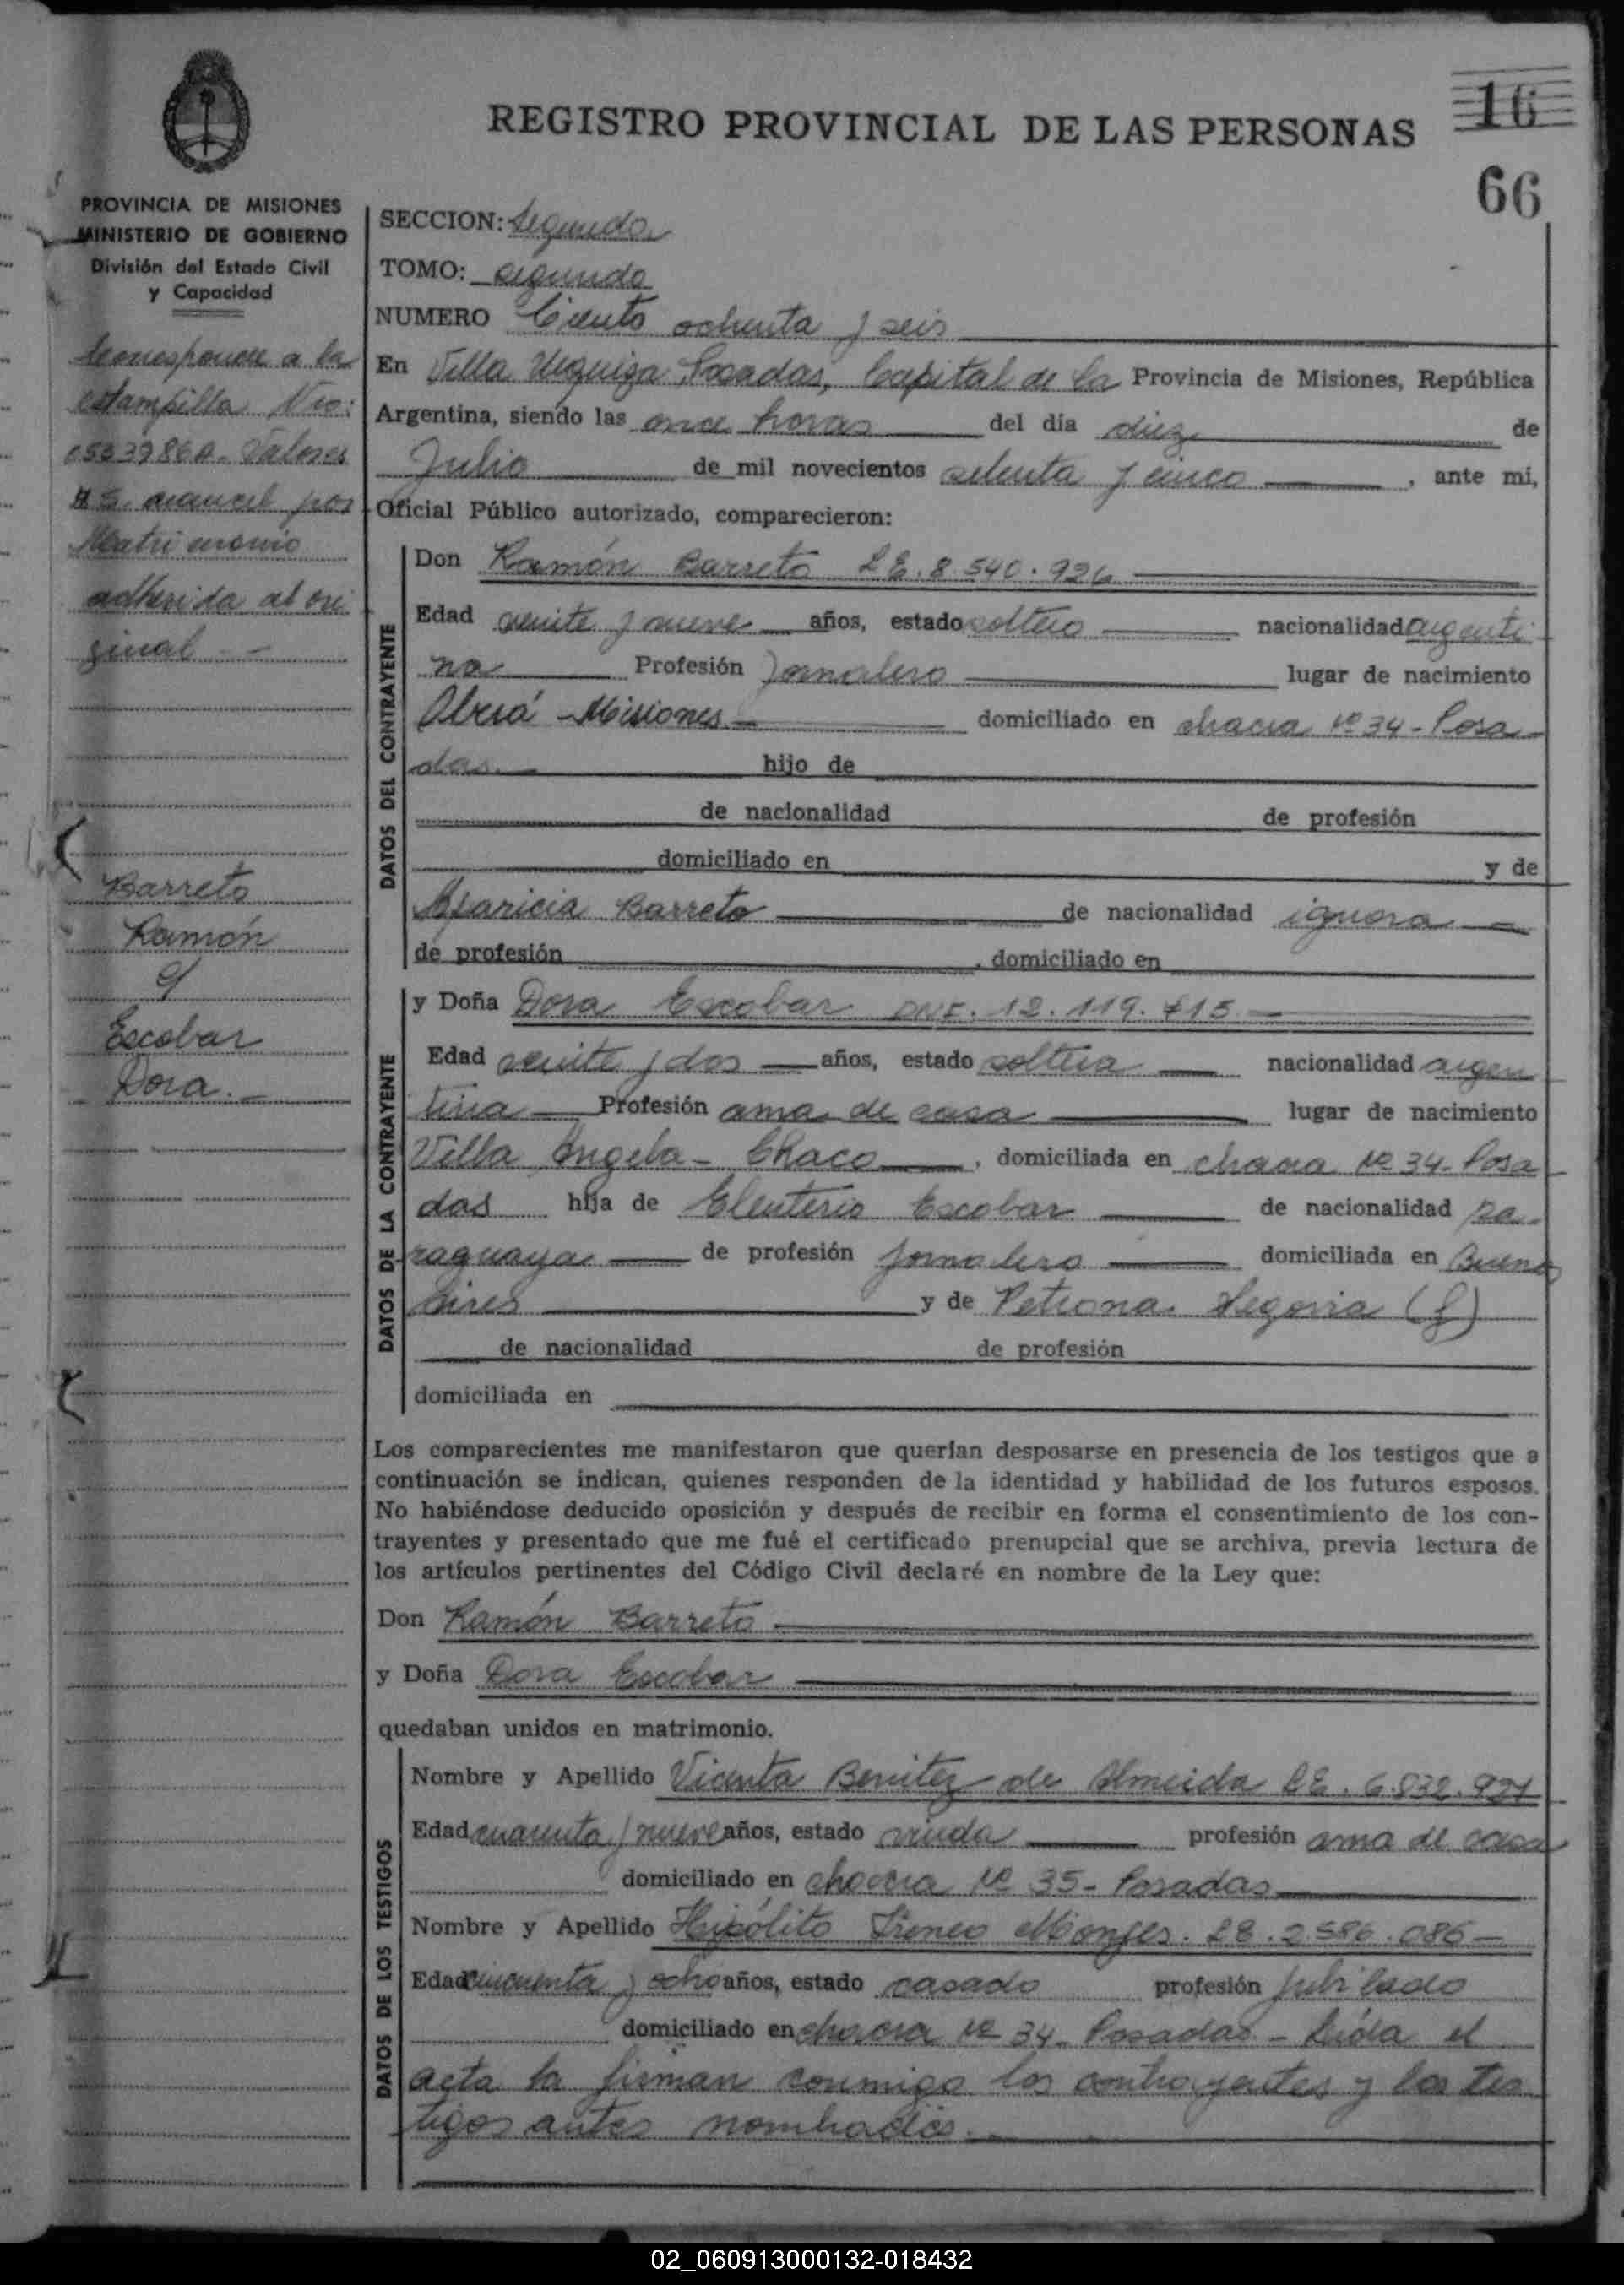 REGISTRO PROVINCIAL DE LAS PERSONAS
16
66
PROVINCIA DE MISIONES
MINISTERIO DE GOBIERNO
División del Estado Civil
y Capacidad
Corresponde a la
estampilla Nro:
Valores
$5 arancel por
Matrimonio
adherida al ori
ginal
Barreto
Ramón
y
Escobar
Dora.
SECCION: Segunda
TOMO: segundo
NUMERO Ciento ochenta y seis
En Villa Urquiza, Posadas, Capital de la Provincia de Misiones, República
Argentina, siendo las once horas del día diez de
Julio de mil novecientos setenta y cinco, ante mi,
Oficial Público autorizado, comparecieron:
DATOS DEL CONTRAYENTE
Don Ramón Barreto L.E. 8.540.926
Edad veinte y nueve años, estado soltero nacionalidad argenti
no Profesión Jornalero lugar de nacimiento
Oberá - Misiones domiciliado en chacra Nº 34 - Posa
das. hijo de
de nacionalidad de profesión
domiciliado en y de
Aparicia Barreto de nacionalidad ignora
de profesión , domiciliado en
DATOS DE LA CONTRAYENTE
y Doña Dora Escobar DNI. 12.119.715
Edad veinte y dos años, estado soltera nacionalidad argen
tina Profesión ama de casa lugar de nacimiento
Villa Angela - Chaco, domiciliada en chacra Nº 34 - Posa
das hija de Eleuterio Escobar de nacionalidad pa
raguaya de profesión jornalero domiciliada en Buenos
Aires y de Petrona Segovia (f)
de nacionalidad de profesión
domiciliada en
Los comparecientes me manifestaron que querían desposarse en presencia de los testigos que a
continuación se indican, quienes responden de la identidad y habilidad de los futuros esposos.
No habiéndose deducido oposición y después de recibir en forma el consentimiento de los con-
trayentes y presentado que me fué el certificado prenupcial que se archiva, previa lectura de
los artículos pertinentes del Código Civil declaré en nombre de la Ley que:
Don Ramón Barreto
y Doña Dora Escobar
quedaban unidos en matrimonio.
DATOS DE LOS TESTIGOS
Nombre y Apellido Vicenta Benitez de Almeida L.E. 6.832.921
Edad cuarenta y nueve años, estado viuda profesión ama de casa
domiciliado en chacra Nº 35 - Posadas
Nombre y Apellido Hipólito Ireneo Monges. L.E. 2.586.086
Edad cincuenta y ocho años, estado casado profesión jubilado
domiciliado en chacra Nº 34 - Posadas - Leída el
acta la firman conmigo los contrayentes y los tes
tigos antes nombrados.
02_060913000132-018432